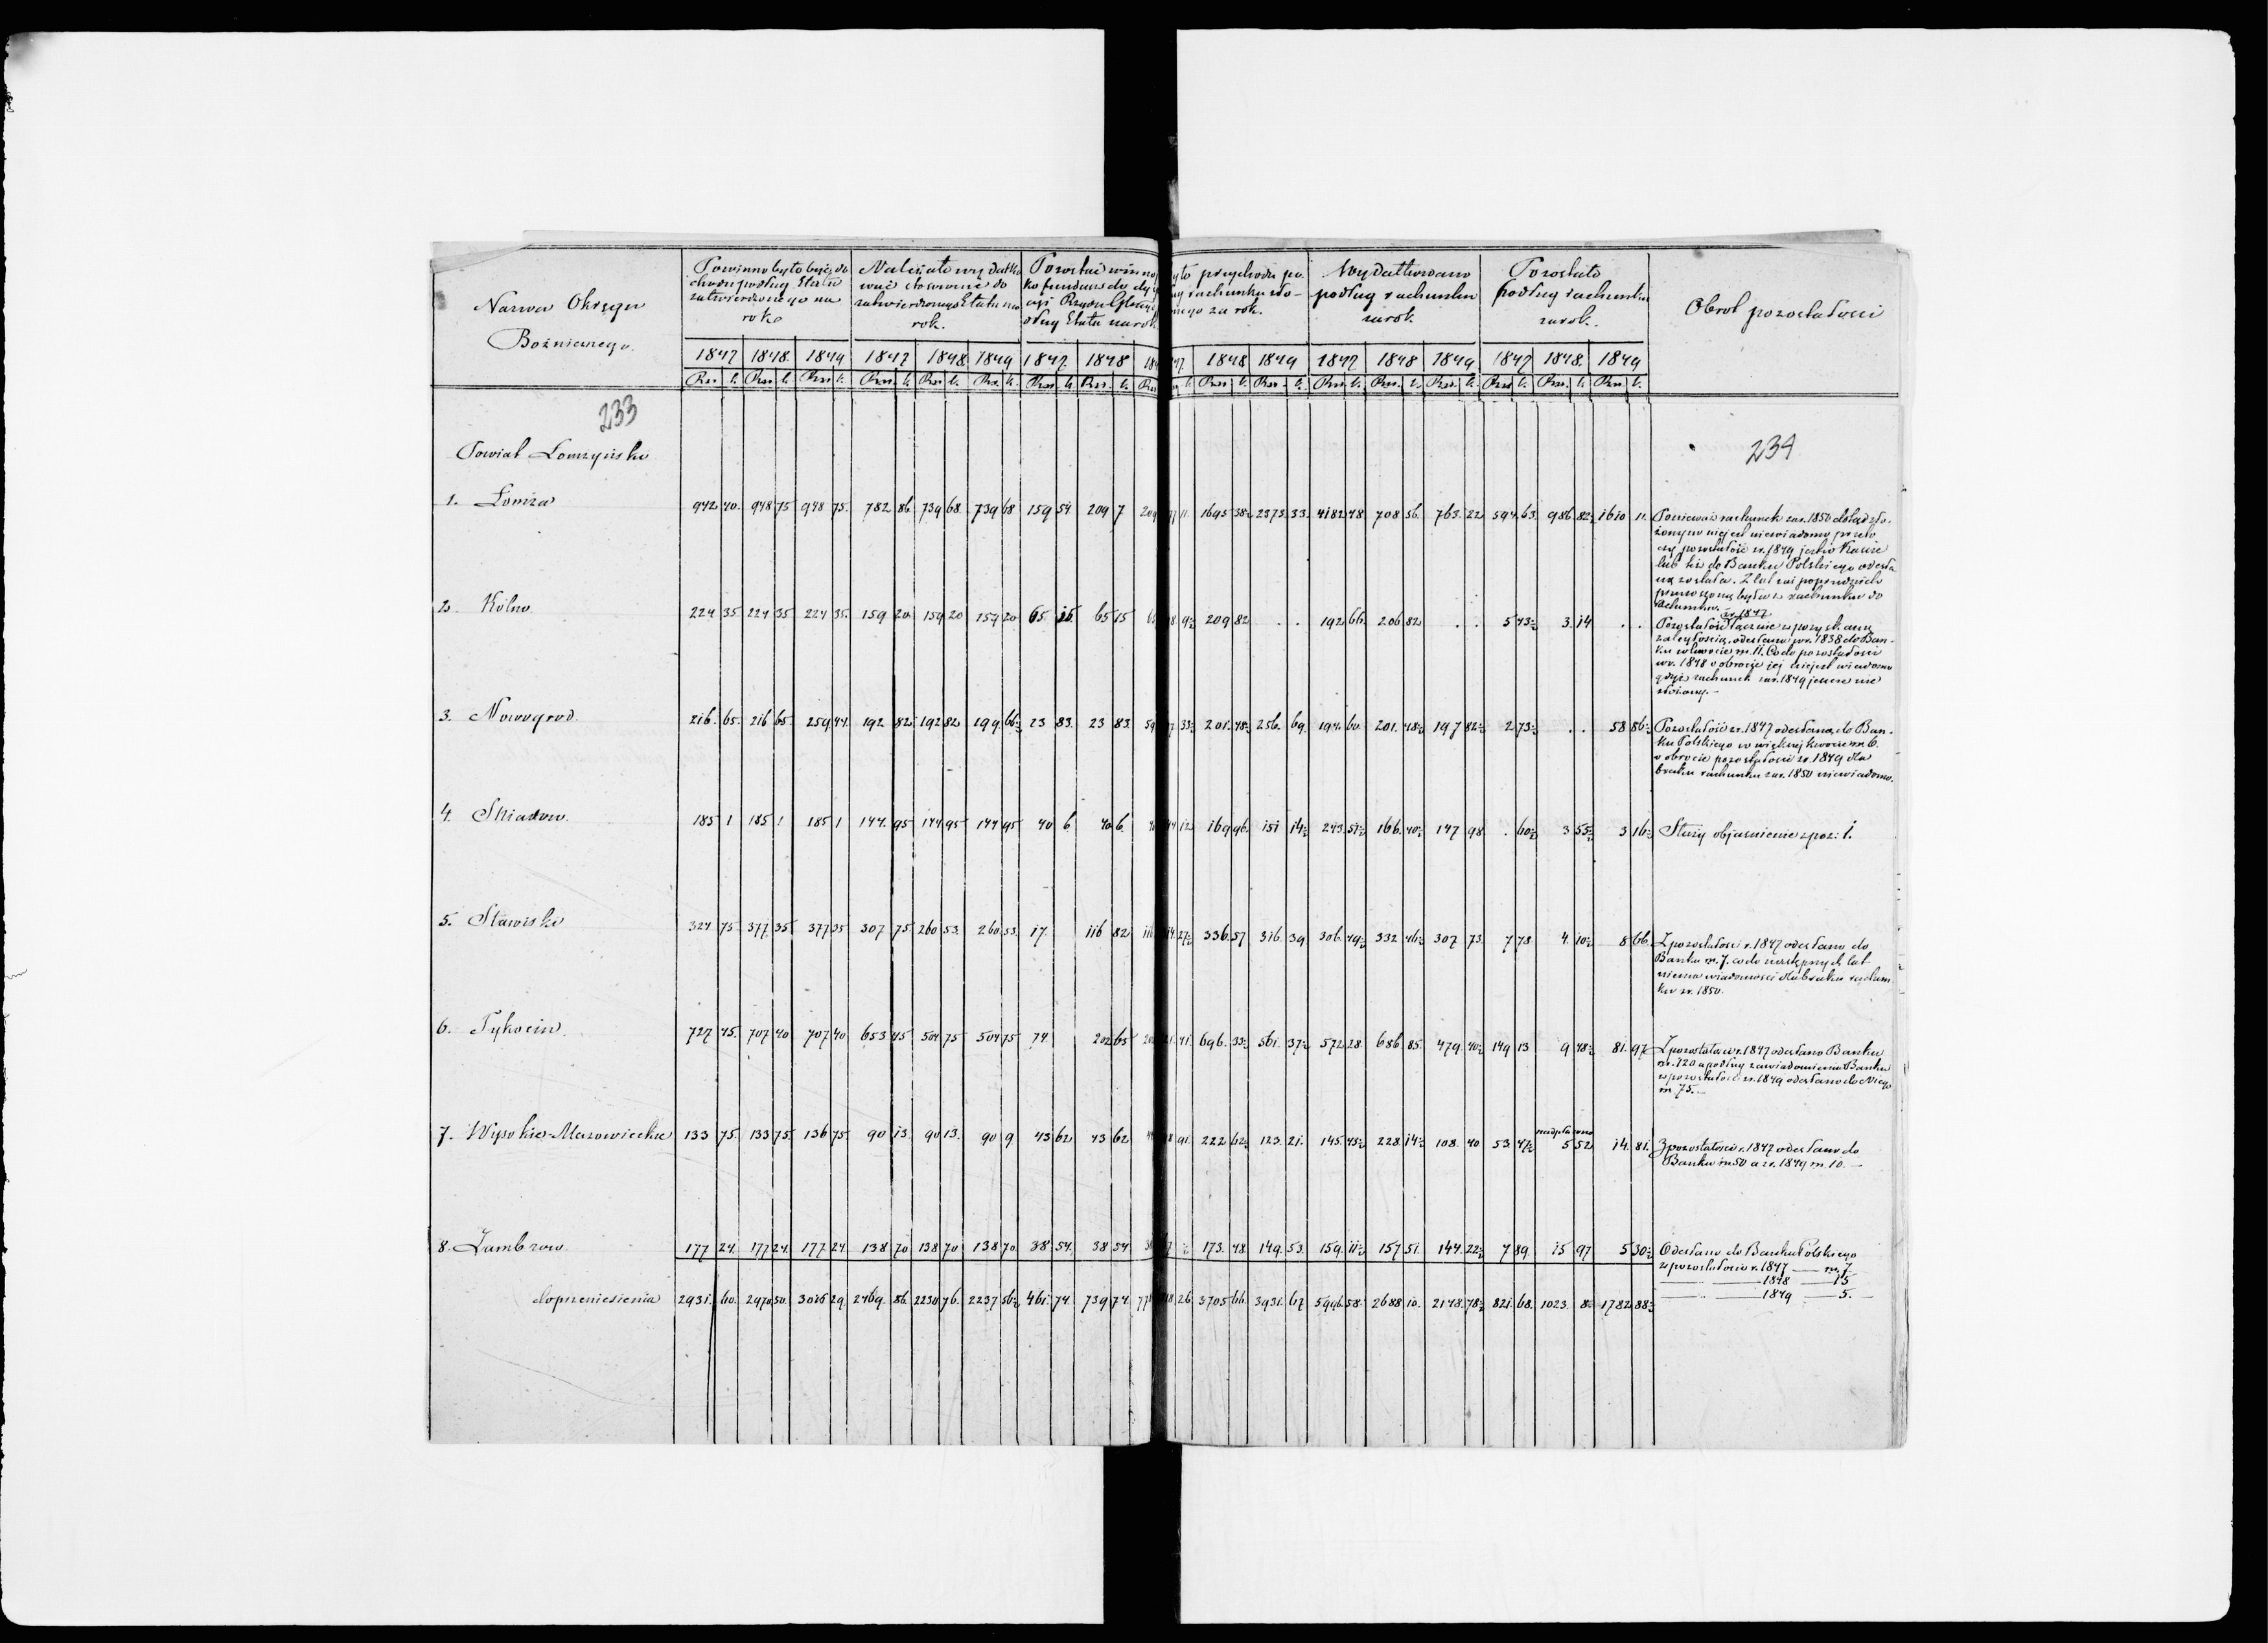 Nazwa Okręgu
Bożniczego.
Powinno było być do
chodu podług Etatu
zatwierdzonego na
rok
Należało wydatko
wać stosownie do
zatwierdzonego Etatu na
rok.
Pozostać winno
ko fundusz do dy
cyi Rządu Głów
podług Etatu na rok
było przychodu po
rachunku zło-
nego za rok.
Wydatkowano
podług rachunku
za rok.
Pozostało
podług rachunku
za rok.
Obrot pozostałości
1847 1848. 1849 1847 1848. 1849 1847. 1848 1848 1849 1847 1848 1849 1847 1848. 1849
233
234
Powiat Łomzyński
1. Łomża 942 40. 948 75 948 75. 782 86 739 68. 739 68 159 54 209 7 209 11. 1695 38½ 2373. 33. 4182 48. 708 56. 763. 22 594. 63. 986 82½ 1610 11. Ponieważ rachunek za r. 1850 dotąd zło-
żony nie jest niewiadomo przeto
czy pozostałość z r. 1849 jest w Kassie
lub też do Banku Polskiego odesła
ną została. Z lat zaś poprzednich
przenoszoną była z rachunku do
rachunku.
2. Kolno 224 35 224 35 224 35. 159 20 159 20 159 20 65. 15. 65 15 209 82 . . 192 66. 206 82 . . 5 43½ 3. 14 . . Pozostałość z r. 1847 łącznie z pozyskaną
zaległością, odesłano w r. 1838 do Ban-
ku w kwocie rs. 11. Co do pozostałości
w r. 1848 o obrocie jej nie jest wiadomo
gdyż rachunek za r. 1849 jeszcze nie
złożony.-
3. Nowogrod. 216. 65. 216 65. 259 44. 192 82 192 82 199. 66½ 23 83. 23 83. 59 33½ 201. 48½ 256. 69. 194. 60. 201. 48½ 197 82½ 2 73½ . . 58 86½ Pozostałość z r. 1847 odesłana do Ban-
ku Polskiego w większej kwocie rs. 6.
o obrocie pozostałości z r. 1849 dla
braku rachunku za r. 1850 niewiadomo.
4. Sniadow. 185 1 185 1 185 1 144. 95 144 95 144 95 40 6 40 6. 40 12 169 96. 151 14½ 243. 51½ 166. 40½ 147 98 . 60½ 3 55½ 3 16½ Służy objasnienie z poz: 1.
5. Stawiski 324 75 377. 35 377 35 307 75 260 53. 260. 53. 17. 116 82 116 27½ 336. 57 316. 39 306. 49½ 332 46½ 307 73. 7 78 4. 10½ 8 66. Z pozostałości r. 1847 odesłano do
Banku rs. 7. co do następnych lat
niema wiadomości dla braku rachun
ku z r. 1850.
6. Tykocin. 727 45. 707 40 707 40 653 45 504 75 504 75 74. 202 65 202 41. 696. 33½ 561. 37½ 572 28. 686 85. 479. 40½ 149 13 9 48½ 81. 97 Z pozostałości r. 1847 odesłano Banku
rs. 120 a podług zawiadomienia Banku
z pozostałości z r. 1849 odesłano do Niego
rs. 75.-
7. Wysokie-Mazowieckie 133 75. 133 75. 136 75. 90 13. 90 13. 90 9. 43 62 43 62 91. 222 62½ 123. 21. 145. 43½ 228. 14½ 108. 40 53. 47½ nadpłacono 5 52 14. 81. Z pozostałości r. 1847 odesłano do
Banku rs 50 a z r. 1849 rs. 10.-
8. Zambrow. 177 24. 177 24. 177 24. 138 70 138 70 138 70. 38 54. 38 54 ½ 173. 48. 149. 53. 159. 11½ 157 51. 144. 22½ 7 89. 15 97 5 30½ Odesłano do Banku Polskiego
z pozostałości r. 1847 — rs. 7.
— — 1848 — 15
— — 1849 — 5.
do przeniesienia 2931. 60. 2970 50. 3016 29. 2469. 86. 2230 76. 2237 56½ 461. 74. 739 74. 26 3705 66. 3931. 67 5996. 58. 2688. 10. 2148. 78½ 821. 68. 1023. 8½ 1782 88½